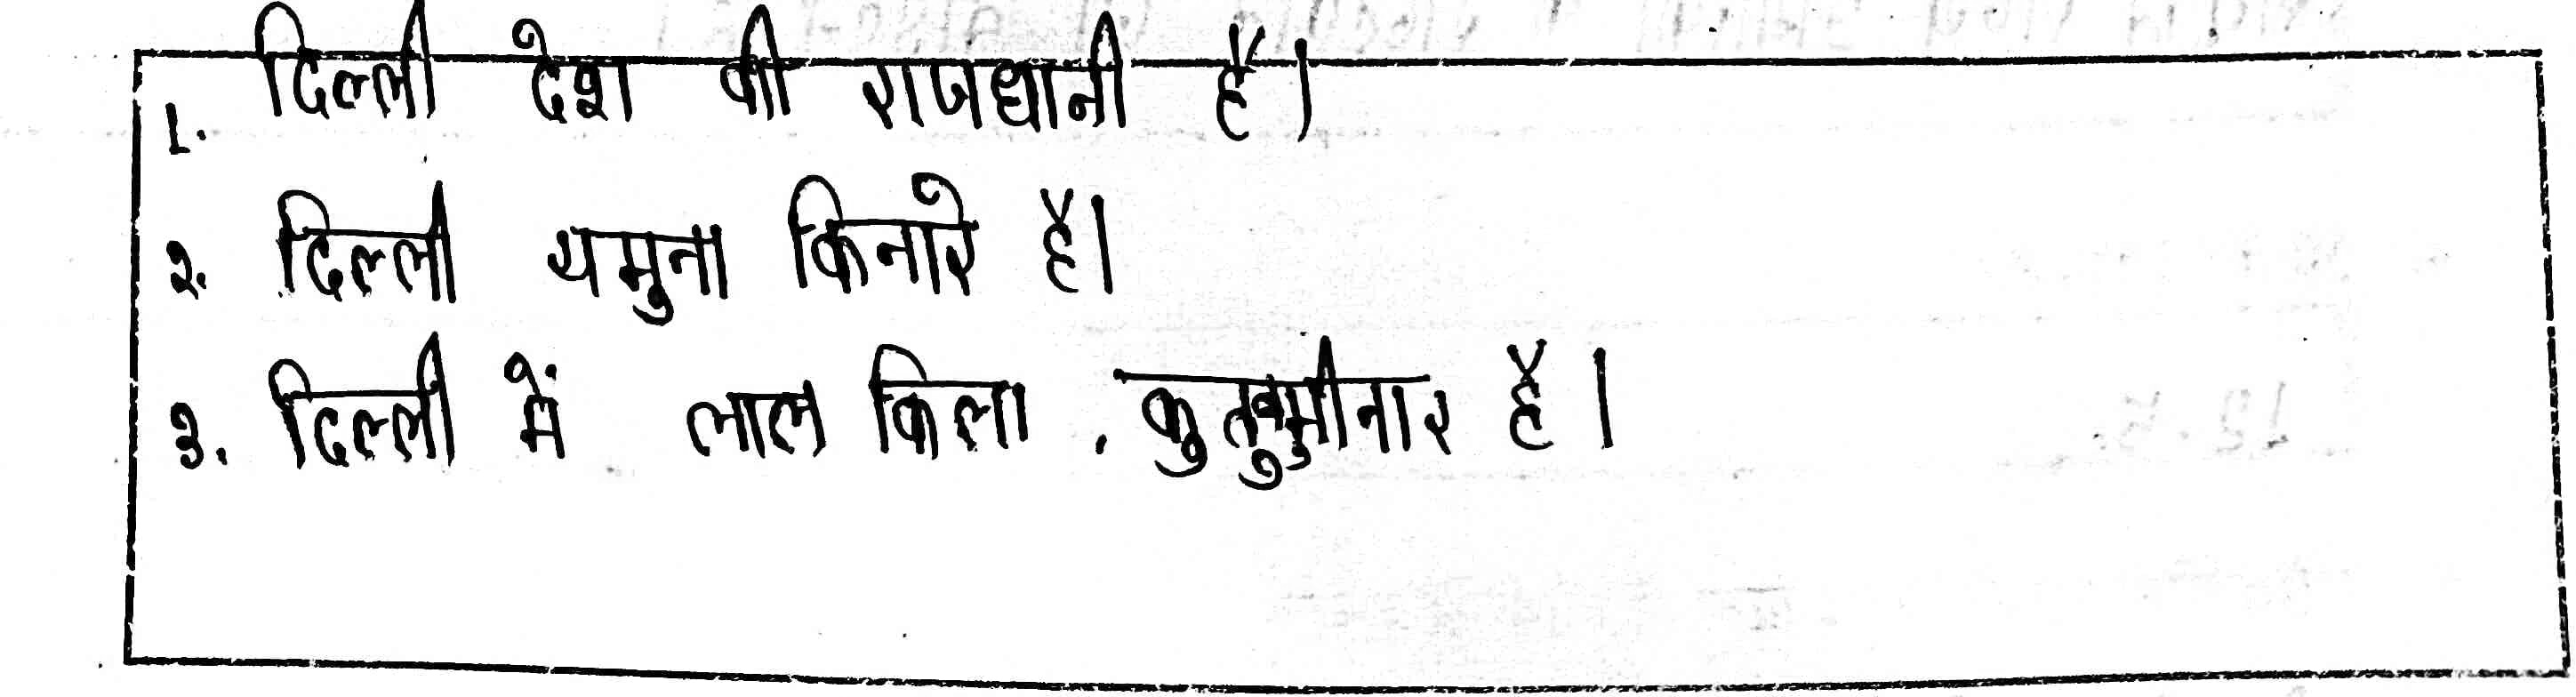 1. दिल्ली देश की राजधानी है।
२. दिल्ली यमुना किनारे है।
३. दिल्ली में लाल किला , कुतुबमीनार है।